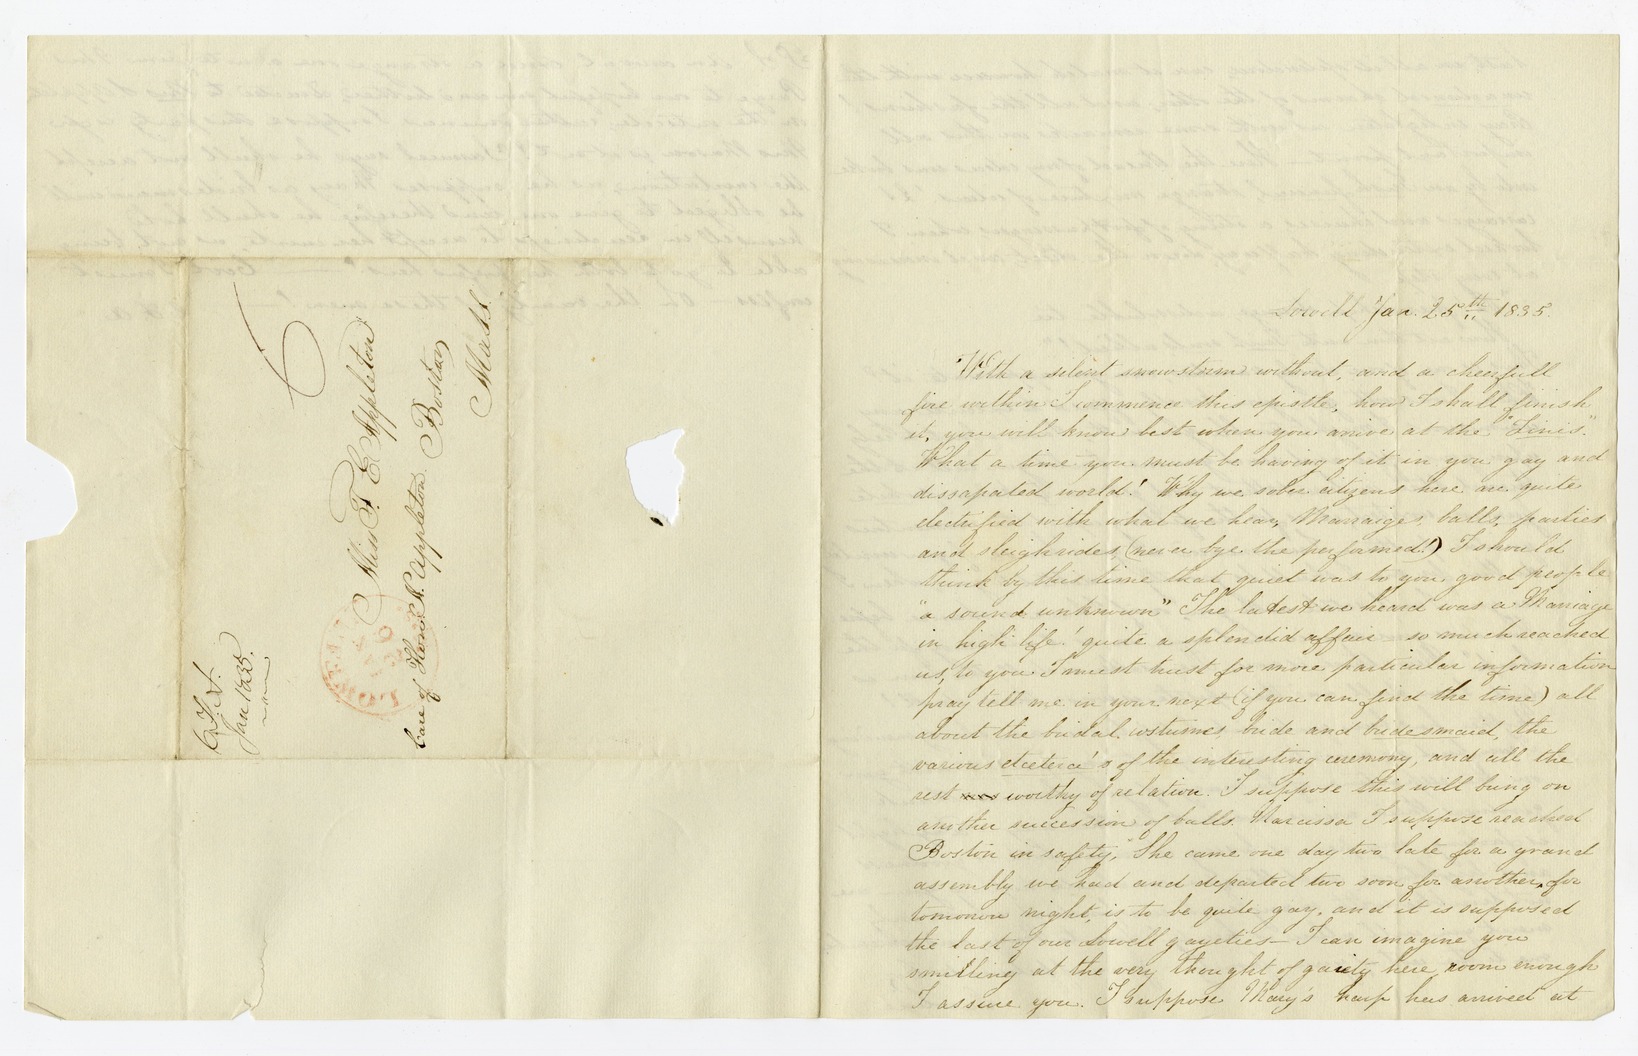 6
Miss F. E. Appleton
Care of Hon. N. Appleton Boston
Mass
Jan 1835.
LOWELL
Lowell Jan. 25th 1835.
With a silent snowstorm without, and a cheerfull
fire within I commence this epistle, how I shall finish
it, you will know best when you arrive at the "Finis."
What a time you must be having of it in you gay and
dissapated world! Why we sober citizens here are quite
electrified with what we hear, Marraiges, balls, parties
and sleighrides, (never bye the performed!) I should
think by this time that quiet was to you good people
"a sound unknown" The latest we heard was a Marriage
in high life! quite a splendid affair so much reached
us, to you I must trust for more particular information
pray tell me in your next (if you can find the time) all
about the bridal costumes, bride and bridesmaid, the
various etcetera's of the interesting ceremony, and all the
rest worthy of relation. I suppose this will bring on
another succession of balls. Narcissa I suppose reached
Boston in safety, She came one day two late for a grand
assembly we had and departed two soon for another, for
tomorrow night, is to be quite gay, and it is supposed
the last of our Lowell gayeties— I can imagine you
smilling at the very thought of gaiety here, room enough
I assure you. I suppose Mary's harp has arrived at